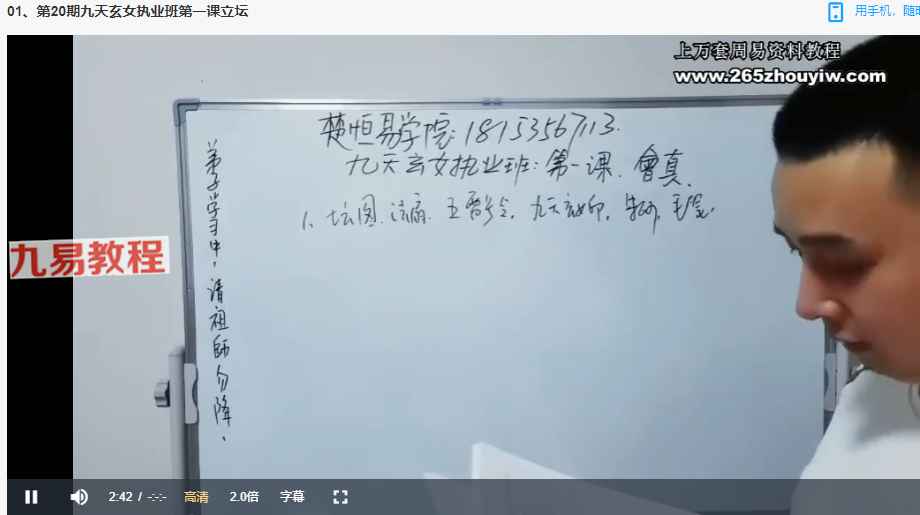 01、第20期九天玄女执业班第一课立坛
用手机，随
上万套周易资料教程
www.265zhouyiw.com
楚恒易学院:18153567113.
九天玄女执业班:第一课.曾真.
1、坛图. 五雷号令. 九天玄女印.
弟子学习中，请祖師勿降、
九易教程
2:42 / -:-:- 高清 2.0倍 字幕